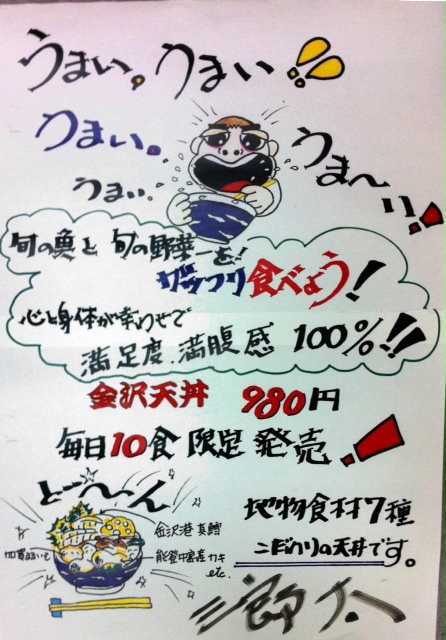 うまい。うまい!!
うまい。
うまい。
うま〜い!
旬の魚と旬の野菜を!
ガッツリ食べよう!
心と身体が幸わせで
満足度、満腹感 100%!!
金沢天丼 980円
毎日10食 限定 発売!
ど〜〜ん
金沢港 真鱈
能登中島産カキ
etc.
地物食材7種
こだわりの天丼です。